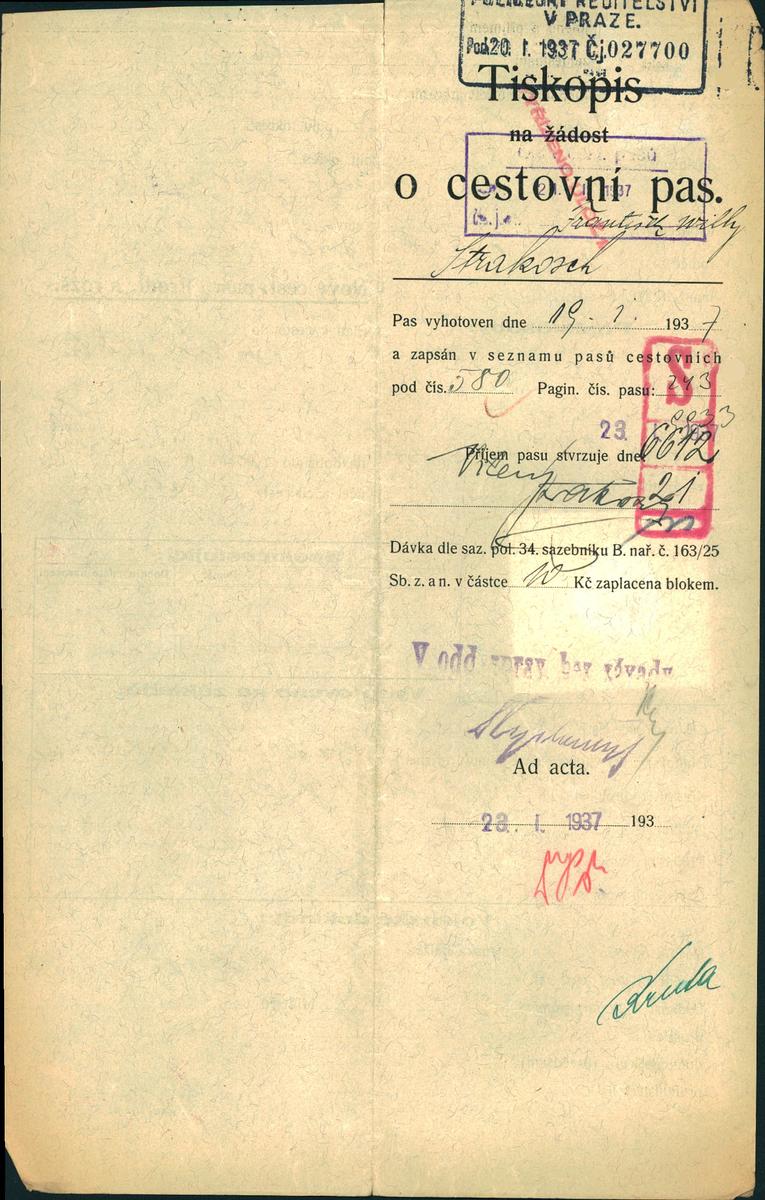 POLICEJNÍ ŘEDITELSTVÍ
V PRAZE.
Pod. 20. I. 1937 Čj. 027700
Tiskopis
na žádost
21. I. 1937
o cestovní pas.
Č. j.
František Willy
Strakosch
Pas vyhotoven dne 19. 1. 1937
a zapsán v seznamu pasů cestovních
pod čís. 580 Pagin. čís. pasu: 243
S
23. I. 1937
6612
Příjem pasu stvrzuje dne
21
Dávka dle saz. pol. 34. sazebníku B. nař. č. 163/25
Sb. z. a n. v částce 10 Kč zaplacena blokem.
Ad acta.
23. I. 1937 193